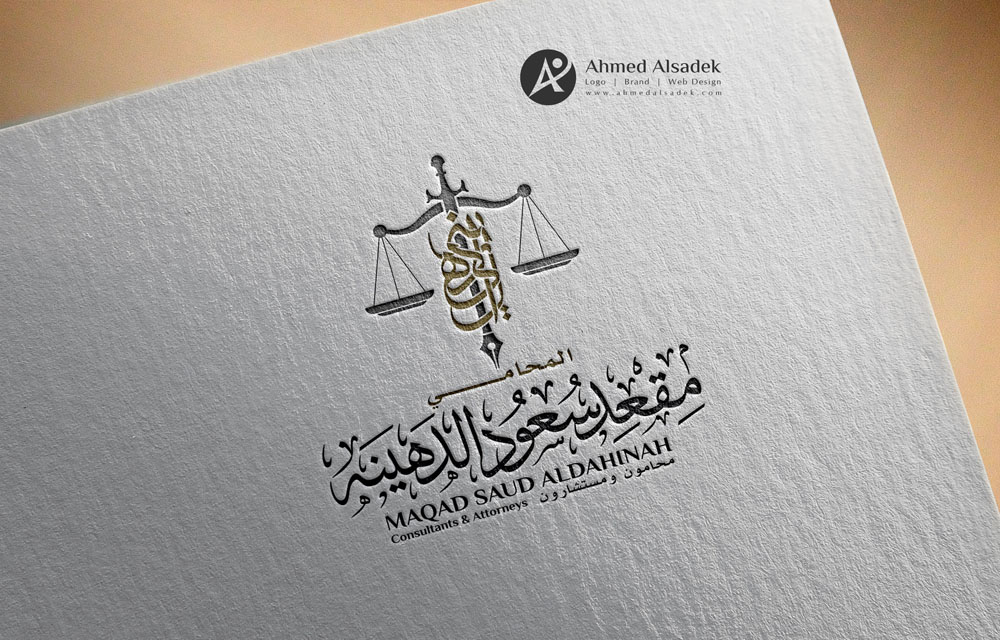 Ahmed Alsadek
Logo | Brand | Web Design
www.ahmedalsadek.com
المحامي
مِقعِد سعُود الدهينَه
MAQAD SAUD ALDAHINAH
Consultants & Attorneys محامون ومستشارون